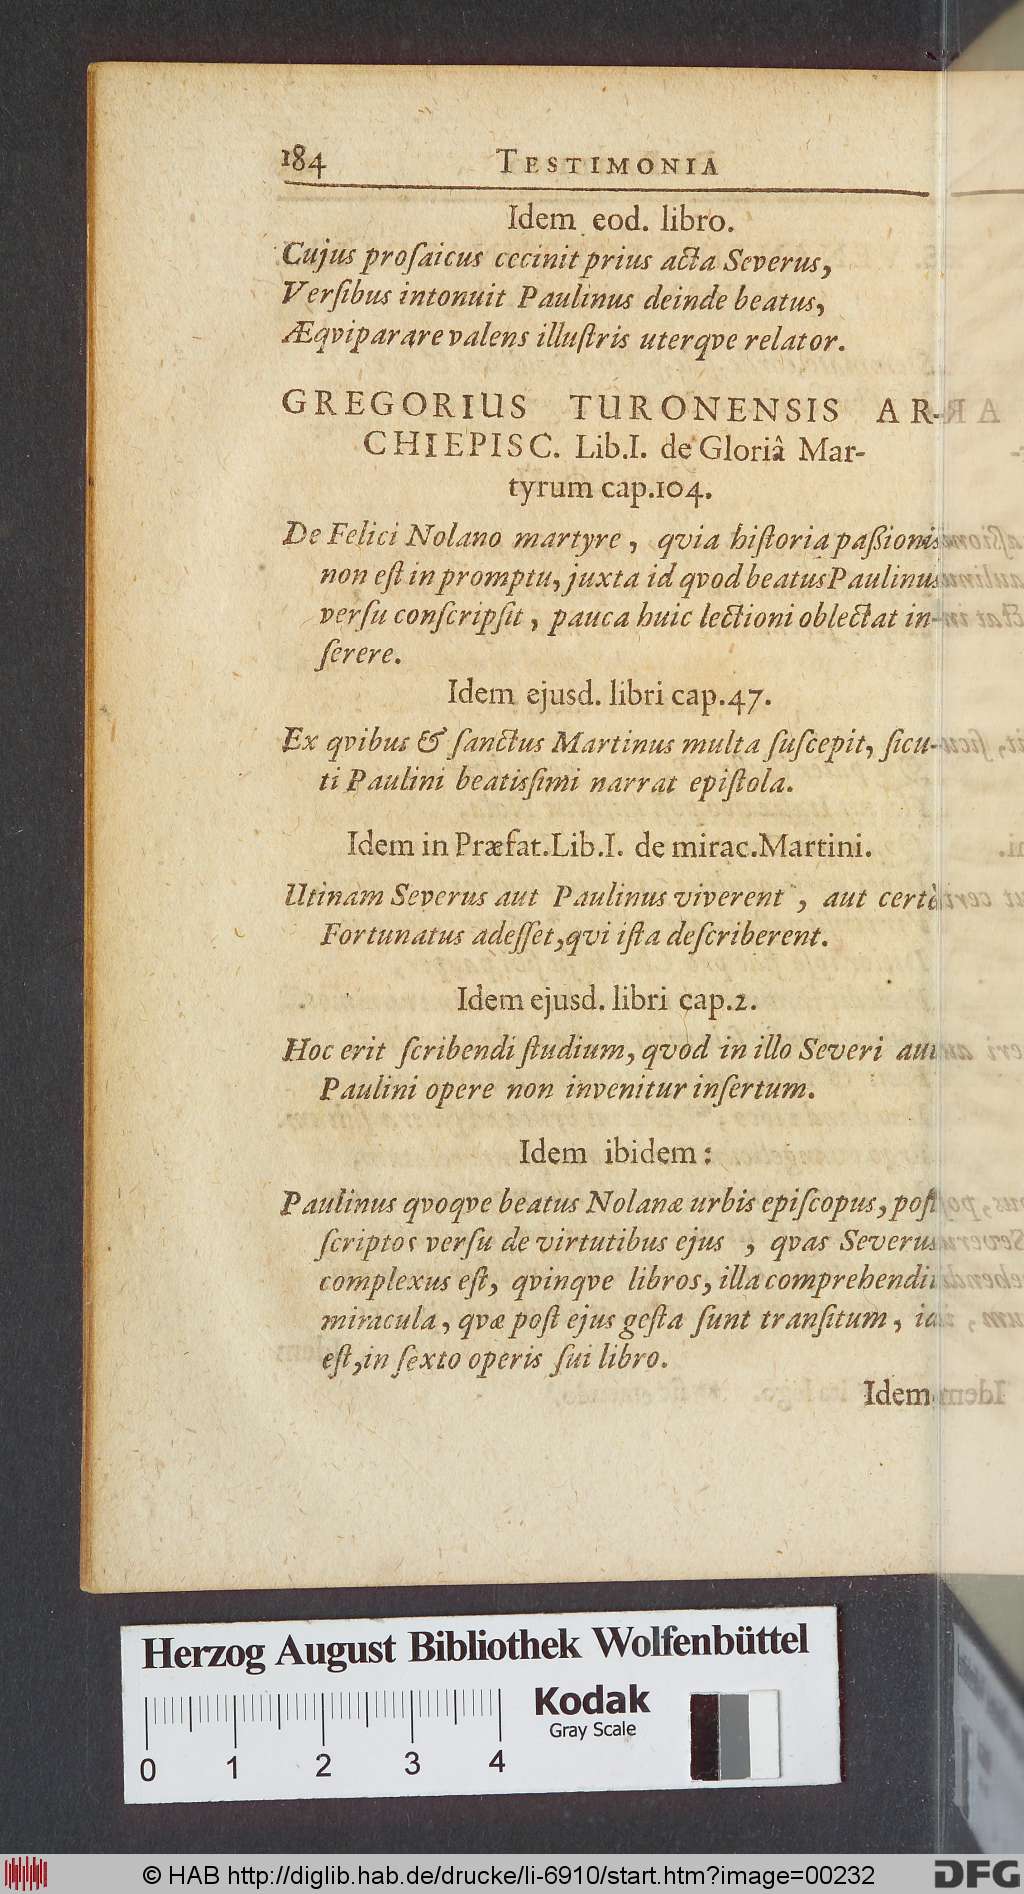 184 TESTIMONIA
Idem eod. libro.
Cujus proſaicus cecinit prius acta Severus,
Verſibus intonuit Paulinus deinde beatus,
Æqviparare valens illuſtris uterqve relator.
GREGORIUS TURONENSIS AR-
CHIEPISC. Lib.I. de Gloriâ Mar-
tyrum cap.104.
De Felici Nolano martyre, qvia hiſtoria paſsionis
non eſt in promptu, juxta id qvod beatus Paulinus
verſu conſcripſit, pauca huic lectioni oblectat in-
ſerere.
Idem ejusd. libri cap.47.
Ex qvibus & ſanctus Martinus multa ſuſcepit, ſicu-
ti Paulini beatisſimi narrat epiſtola.
Idem in Præfat.Lib.I. de mirac.Martini.
Utinam Severus aut Paulinus viverent, aut certè
Fortunatus adeſſet, qvi iſta deſcriberent.
Idem ejusd. libri cap.2.
Hoc erit ſcribendi ſtudium, qvod in illo Severi aut
Paulini opere non invenitur inſertum.
Idem ibidem:
Paulinus qvoqve beatus Nolanæ urbis epiſcopus, poſt
ſcriptos verſu de virtutibus ejus, qvas Severus
complexus eſt, qvinqve libros, illa comprehendit
miracula, qvæ poſt ejus geſta ſunt tranſitum, id
eſt, in ſexto operis ſui libro.
Idem
Herzog August Bibliothek Wolfenbüttel
Kodak
Gray Scale
0 1 2 3 4
© HAB http://diglib.hab.de/drucke/li-6910/start.htm?image=00232
DFG